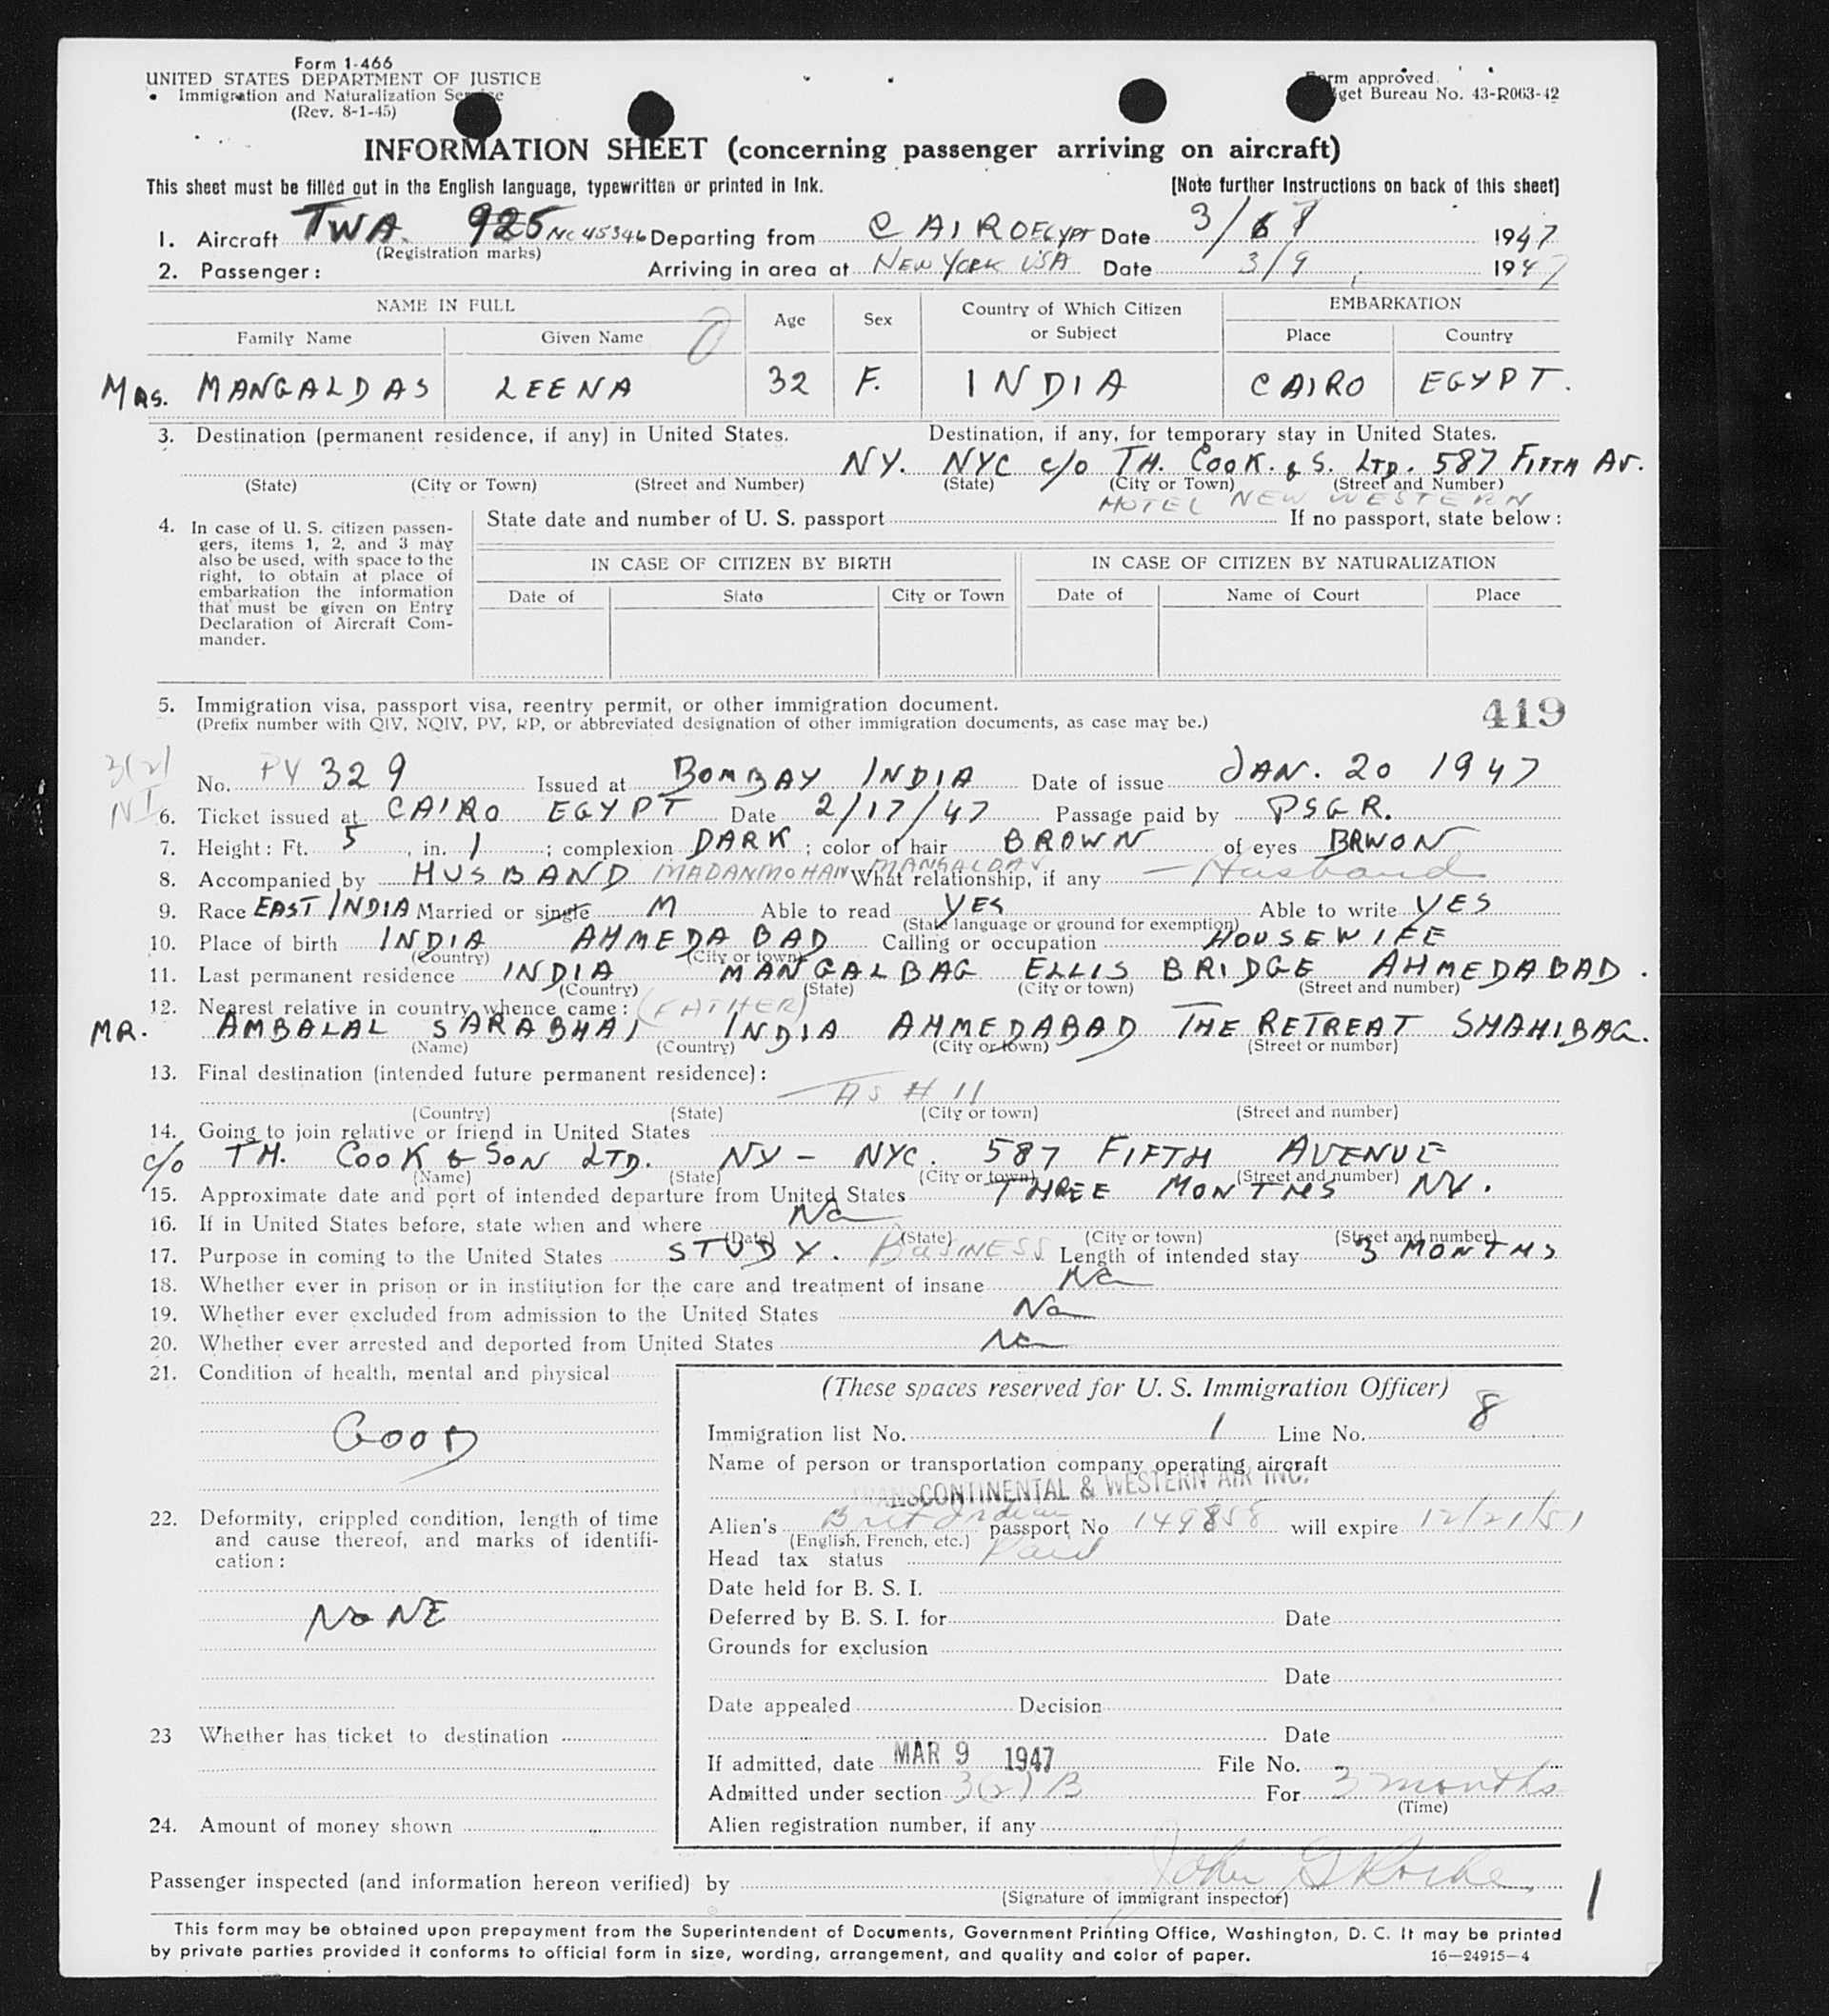 Form 1-466
UNITED STATES DEPARTMENT OF JUSTICE
Immigration and Naturalization Service
(Rev. 8-1-45)
Form approved.
Budget Bureau No. 43-R063-42
INFORMATION SHEET (concerning passenger arriving on aircraft)
This sheet must be filled out in the English language, typewritten or printed in Ink.
[Note further Instructions on back of this sheet]
1. Aircraft TWA 925 NC 45346 Departing from CAIRO EGYPT Date 3/ 8 1947
(Registration marks)
2. Passenger: Arriving in area at NEW YORK USA Date 3/9 1947
NAME IN FULL Age Sex Country of Which Citizen or Subject EMBARKATION
Family Name Given Name Place Country
MRS. MANGALDAS LEENA 32 F. INDIA CAIRO EGYPT.
3. Destination (permanent residence, if any) in United States. Destination, if any, for temporary stay in United States.
NY. NYC c/o TH. COOK. & S. LTD. 587 FIFTH AV.
(State) (City or Town) (Street and Number) (State) (City or Town) (Street and Number)
HOTEL NEW WESTERN
4. In case of U. S. citizen passengers, items 1, 2, and 3 may also be used, with space to the right, to obtain at place of embarkation the information that must be given on Entry Declaration of Aircraft Commander.
State date and number of U. S. passport If no passport, state below:
IN CASE OF CITIZEN BY BIRTH IN CASE OF CITIZEN BY NATURALIZATION
Date of State City or Town Date of Name of Court Place
5. Immigration visa, passport visa, reentry permit, or other immigration document.
(Prefix number with QIV, NQIV, PV, RP, or abbreviated designation of other immigration documents, as case may be.)
419
3(2)
NI
No. PV 329 Issued at BOMBAY INDIA Date of issue JAN. 20 1947
6. Ticket issued at CAIRO EGYPT Date 2/17/47 Passage paid by PSGR.
7. Height: Ft. 5, in. 1; complexion DARK; color of hair BROWN of eyes BRWON
8. Accompanied by HUSBAND MADANMOHAN MANGALDAS What relationship, if any - Husband
9. Race EAST INDIA Married or single M Able to read YES Able to write YES
(State language or ground for exemption)
10. Place of birth INDIA AHMEDABAD Calling or occupation HOUSEWIFE
(Country) (City or town)
11. Last permanent residence INDIA MANGALBAG ELLIS BRIDGE AHMEDABAD.
(Country) (State) (City or town) (Street and number)
12. Nearest relative in country whence came: (FATHER)
MR. AMBALAL SARABHAI INDIA AHMEDABAD THE RETREAT SHAHIBAG.
(Name) (Country) (City or town) (Street or number)
13. Final destination (intended future permanent residence):
AS # 11
(Country) (State) (City or town) (Street and number)
14. Going to join relative or friend in United States
c/o TH. COOK & SON LTD. NY - NYC. 587 FIFTH AVENUE
(Name) (State) (City or town) (Street and number)
15. Approximate date and port of intended departure from United States THREE MONTHS NY.
16. If in United States before, state when and where No
(Date) (State) (City or town) (Street and number)
17. Purpose in coming to the United States STUDY. BUSINESS Length of intended stay 3 MONTHS
18. Whether ever in prison or in institution for the care and treatment of insane No
19. Whether ever excluded from admission to the United States No
20. Whether ever arrested and deported from United States No
21. Condition of health, mental and physical
GOOD
22. Deformity, crippled condition, length of time and cause thereof, and marks of identification:
NONE
23 Whether has ticket to destination
24. Amount of money shown
(These spaces reserved for U. S. Immigration Officer)
Immigration list No. 1 Line No. 8
Name of person or transportation company operating aircraft
TRANSCONTINENTAL & WESTERN AIR INC.
Alien's Brit Indian passport No 149858 will expire 12/21/51
(English, French, etc.)
Head tax status Paid
Date held for B. S. I.
Deferred by B. S. I. for Date
Grounds for exclusion
Date
Date appealed Decision
Date
If admitted, date MAR 9 1947 File No.
Admitted under section 3(2) B For 3 months
(Time)
Alien registration number, if any
Passenger inspected (and information hereon verified) by John G
(Signature of immigrant inspector)
1
This form may be obtained upon prepayment from the Superintendent of Documents, Government Printing Office, Washington, D. C. It may be printed
by private parties provided it conforms to official form in size, wording, arrangement, and quality and color of paper.
16—24915-4